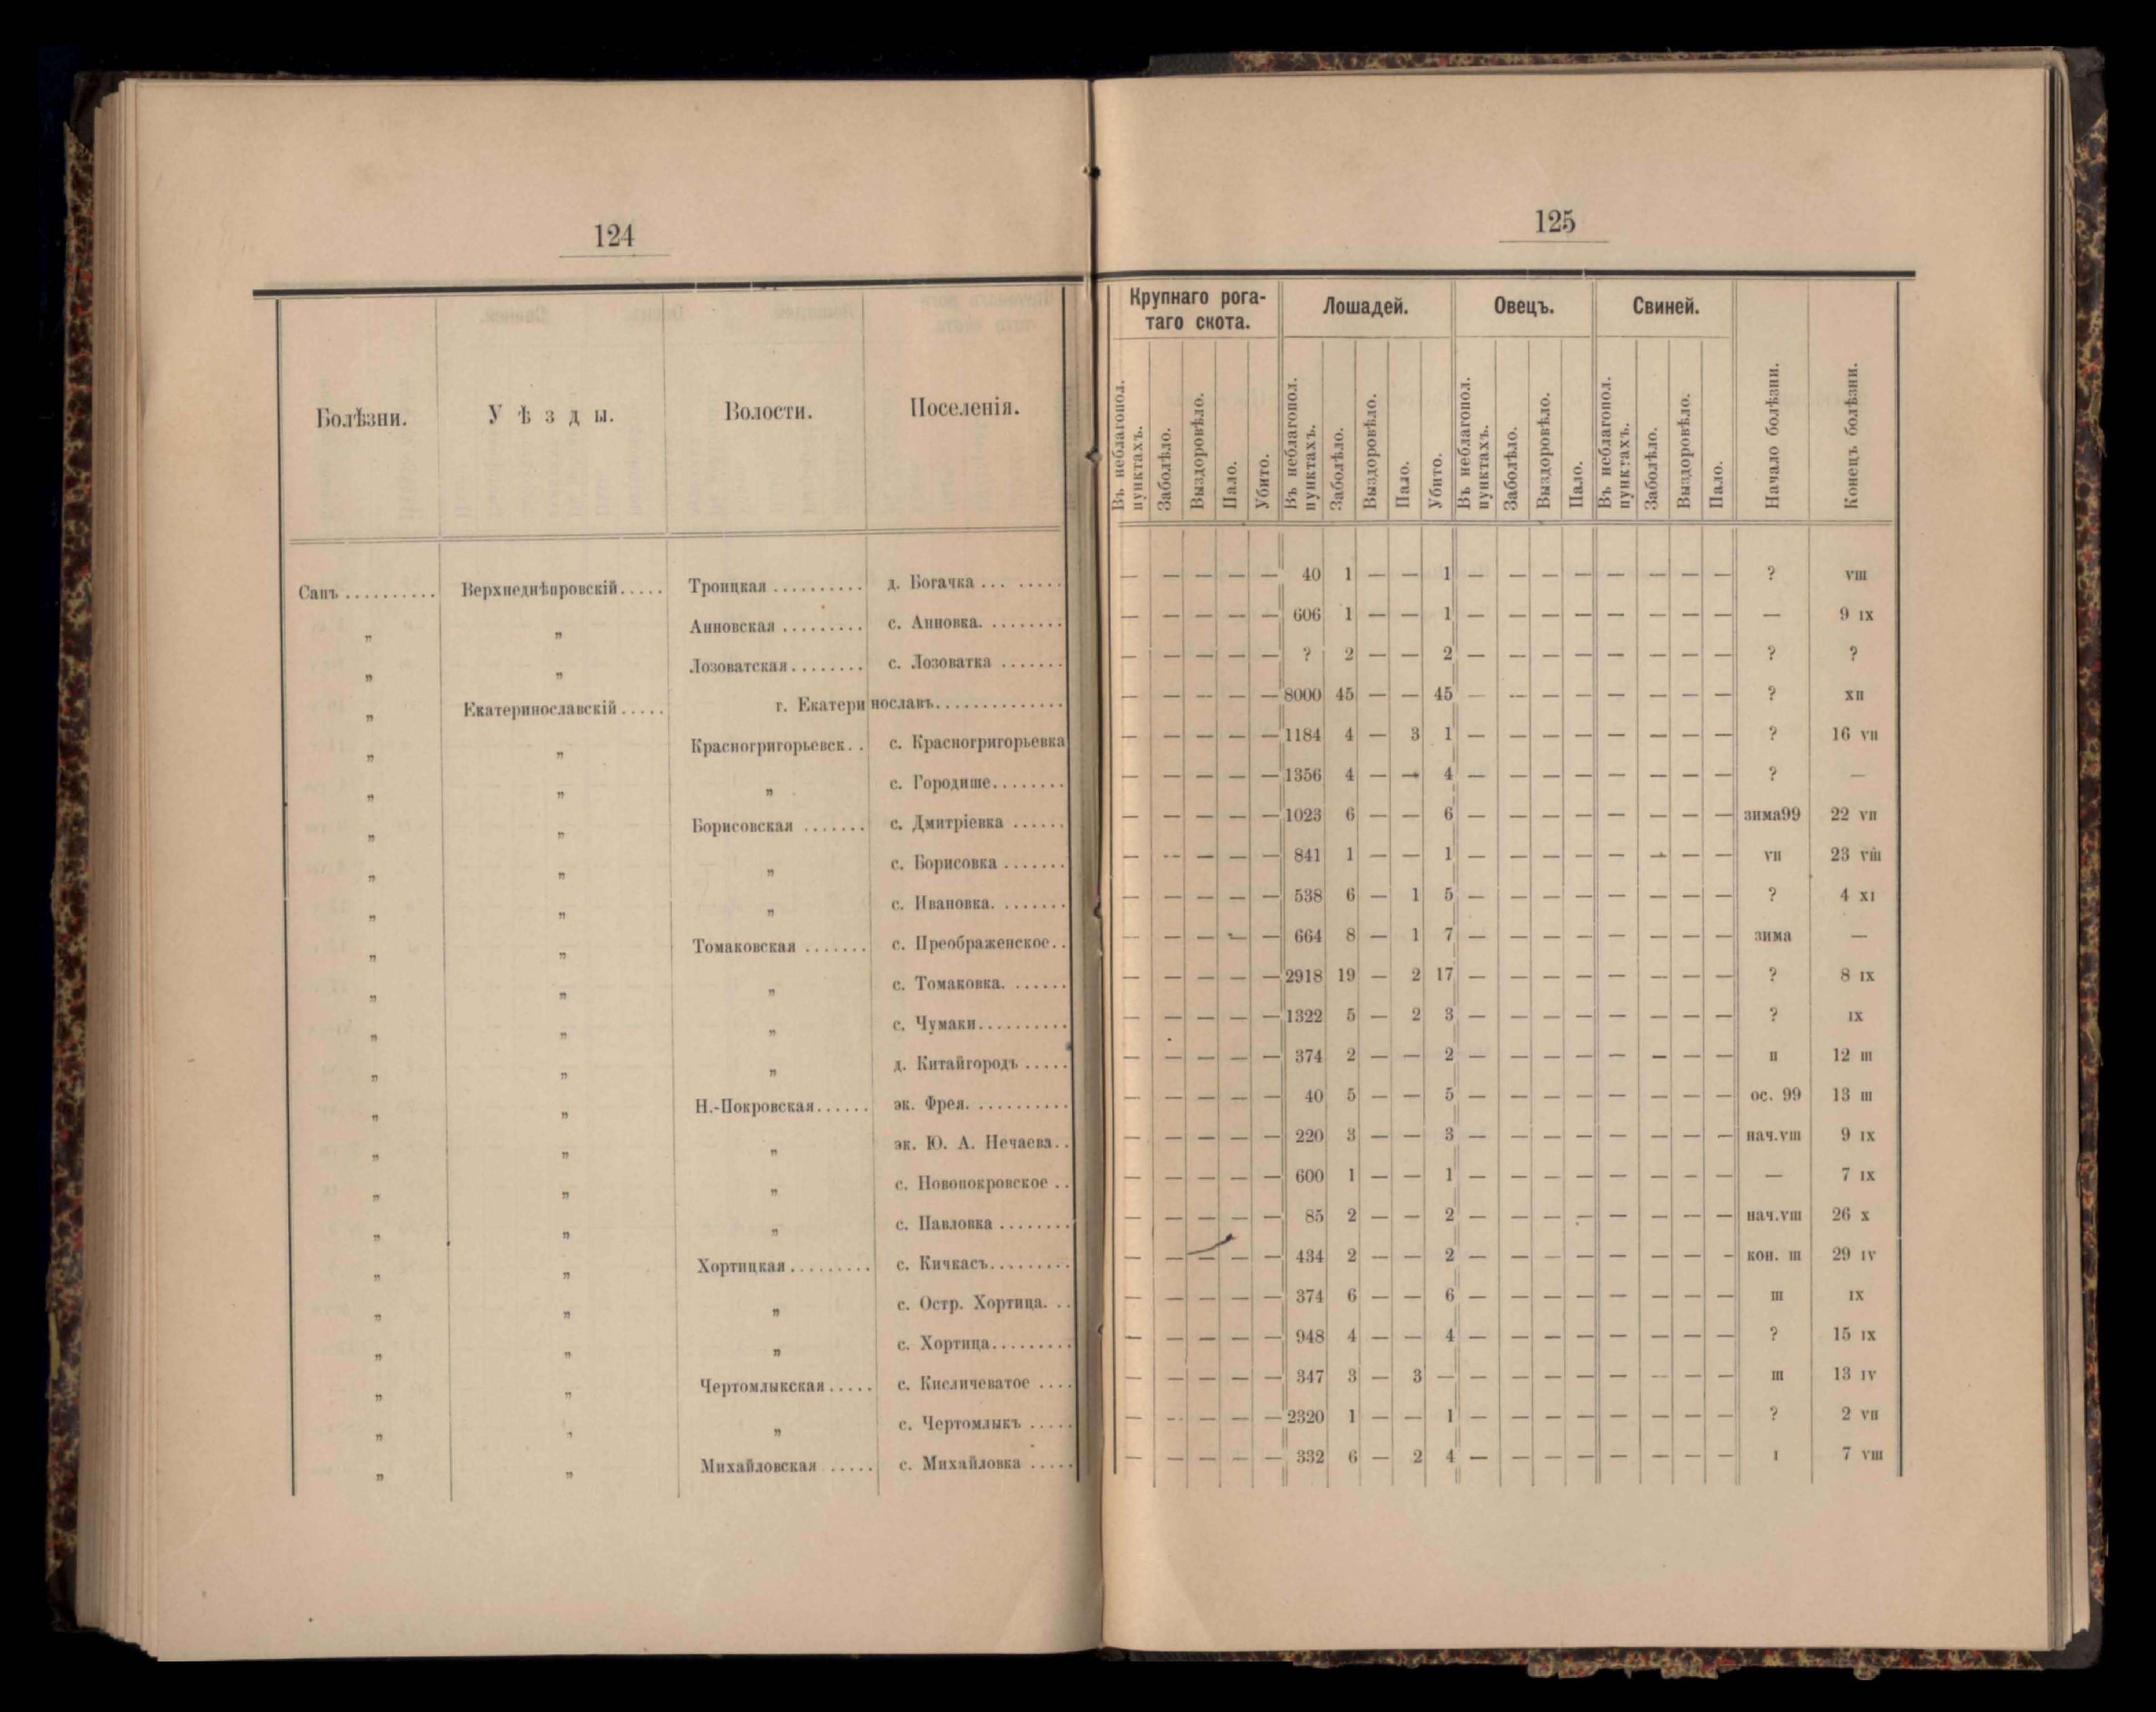 124
Болѣзни. Уѣзды. Волости. Поселенія.
Сапъ .......... Верхнеднѣпровскій..... Троицкая .......... д. Богачка ... .....
„ „ Анновская ......... с. Анновка. ........
„ „ Лозоватская........ с. Лозоватка .......
„ Екатеринославскій ..... г. Екатеринославъ..............
„ „ Красногригорьевск. . с. Красногригорьевка
„ „ „ с. Городише........
„ „ Борисовская ....... с. Дмитріевка ......
„ „ „ с. Борисовка .......
„ „ „ с. Ивановка. .......
„ „ Томаковская ....... с. Преображенское. .
„ „ „ с. Томаковка. ......
„ „ „ с. Чумаки..........
„ „ „ д. Китайгородъ .....
„ „ Н.-Покровская...... эк. Фрея. ..........
„ „ „ эк. Ю. А. Нечаева. .
„ „ „ с. Новопокровское . .
„ „ „ с. Павловка ........
„ „ Хортицкая ......... с. Кичкасъ.........
„ „ „ с. Остр. Хортица. . .
„ „ „ с. Хортица.........
„ „ Чертомлыкская ..... с. Кисличеватое ....
„ „ „ с. Чертомлыкъ .....
„ „ Михайловская ..... с. Михайловка .....
125
Крупнаго рога-
таго скота. Лошадей. Овецъ. Свиней.
Въ неблагопол. пунктахъ. Заболѣло. Выздоровѣло. Пало. Убито. Въ неблагопол. пунктахъ. Заболѣло. Выздоровѣло. Пало. Убито. Въ неблагопол. пунктахъ. Заболѣло. Выздоровѣло. Пало. Въ неблагопол. пунктахъ. Заболѣло. Выздоровѣло. Пало. Начало болѣзни. Конецъ болѣзни.
— — — — — 40 1 — — 1 — — — — — — — — ? VIII
— — — — — 606 1 — — 1 — — — — — — — — — 9 IX
— — — — — ? 2 — — 2 — — — — — — — — ? ?
— — — — — 8000 45 — — 45 — — — — — — — — ? XII
— — — — — 1184 4 — 3 1 — — — — — — — — ? 16 VII
— — — — — 1356 4 — — 4 — — — — — — — — ? —
— — — — — 1023 6 — — 6 — — — — — — — — зима99 22 VII
— — — — — 841 1 — — 1 — — — — — — — — VII 23 VIII
— — — — — 538 6 — 1 5 — — — — — — — — ? 4 XI
— — — — — 664 8 — 1 7 — — — — — — — — зима —
— — — — — 2918 19 — 2 17 — — — — — — — — ? 8 IX
— — — — — 1322 5 — 2 3 — — — — — — — — ? IX
— — — — — 374 2 — — 2 — — — — — — — — II 12 III
— — — — — 40 5 — — 5 — — — — — — — — ос. 99 13 III
— — — — — 220 3 — — 3 — — — — — — — — нач.VIII 9 IX
— — — — — 600 1 — — 1 — — — — — — — — — 7 IX
— — — — — 85 2 — — 2 — — — — — — — — нач.VIII 26 X
— — — — — 434 2 — — 2 — — — — — — — — кон. III 29 IV
— — — — — 374 6 — — 6 — — — — — — — — III IX
— — — — — 948 4 — — 4 — — — — — — — — ? 15 IX
— — — — — 347 3 — 3 — — — — — — — — — III 13 IV
— — — — — 2320 1 — — 1 — — — — — — — — ? 2 VII
— — — — — 332 6 — 2 4 — — — — — — — — I 7 VIII